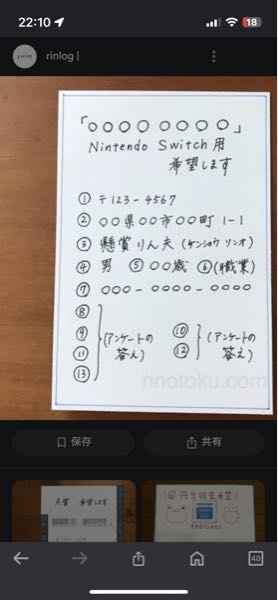 22:10
18
rinlog
rinlog |
「○○○○ ○○○○」
Nintendo Switch用
希望します
① 〒123-4567
② ○○県○○市○○町 1-1
③ 懸賞りん夫 (ケンショウ リンオ)
④ 男 ⑤ ○○歳 ⑥ (職業)
⑦ ○○○-○○○○-○○○○
⑧
⑨ (アンケートの
⑪ 答え)
⑬
⑩ (アンケートの
⑫ 答え)
rinotoku.com
保存
共有
A賞 希望します
40